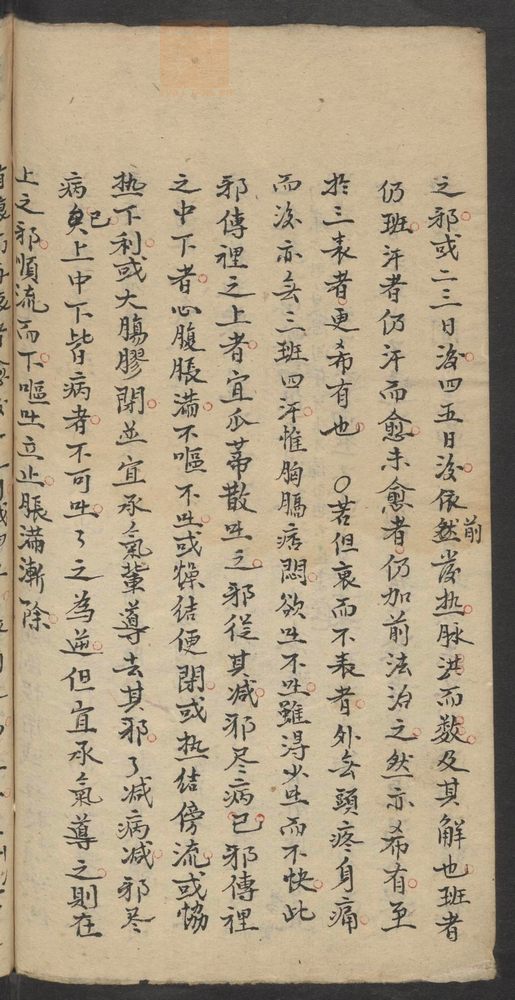 之邪或二三日後四五日後依然前發热脉洪而数及其解也班者
仍班汗者仍汗而愈未愈者仍加前法治之然亦希有至
於三表者更希有也〇若但裏而不表者外無頭疼身痛
而後亦無三班四汗惟胸膈痞悶欲吐不吐雖得少吐而不快此
邪傳裡之上者宜瓜蒂散吐之邪從其减邪尽病已邪傳裡
之中下者心腹脹满不嘔不吐或燥结便閉或热结傍流或恊
热下利或大腸膠閉並宜承氣輩導去其邪了减病减邪尽
病已上中下皆病者不可吐了之為逆但宜承氣導之則在
上之邪順流而下嘔吐立止脹满漸除